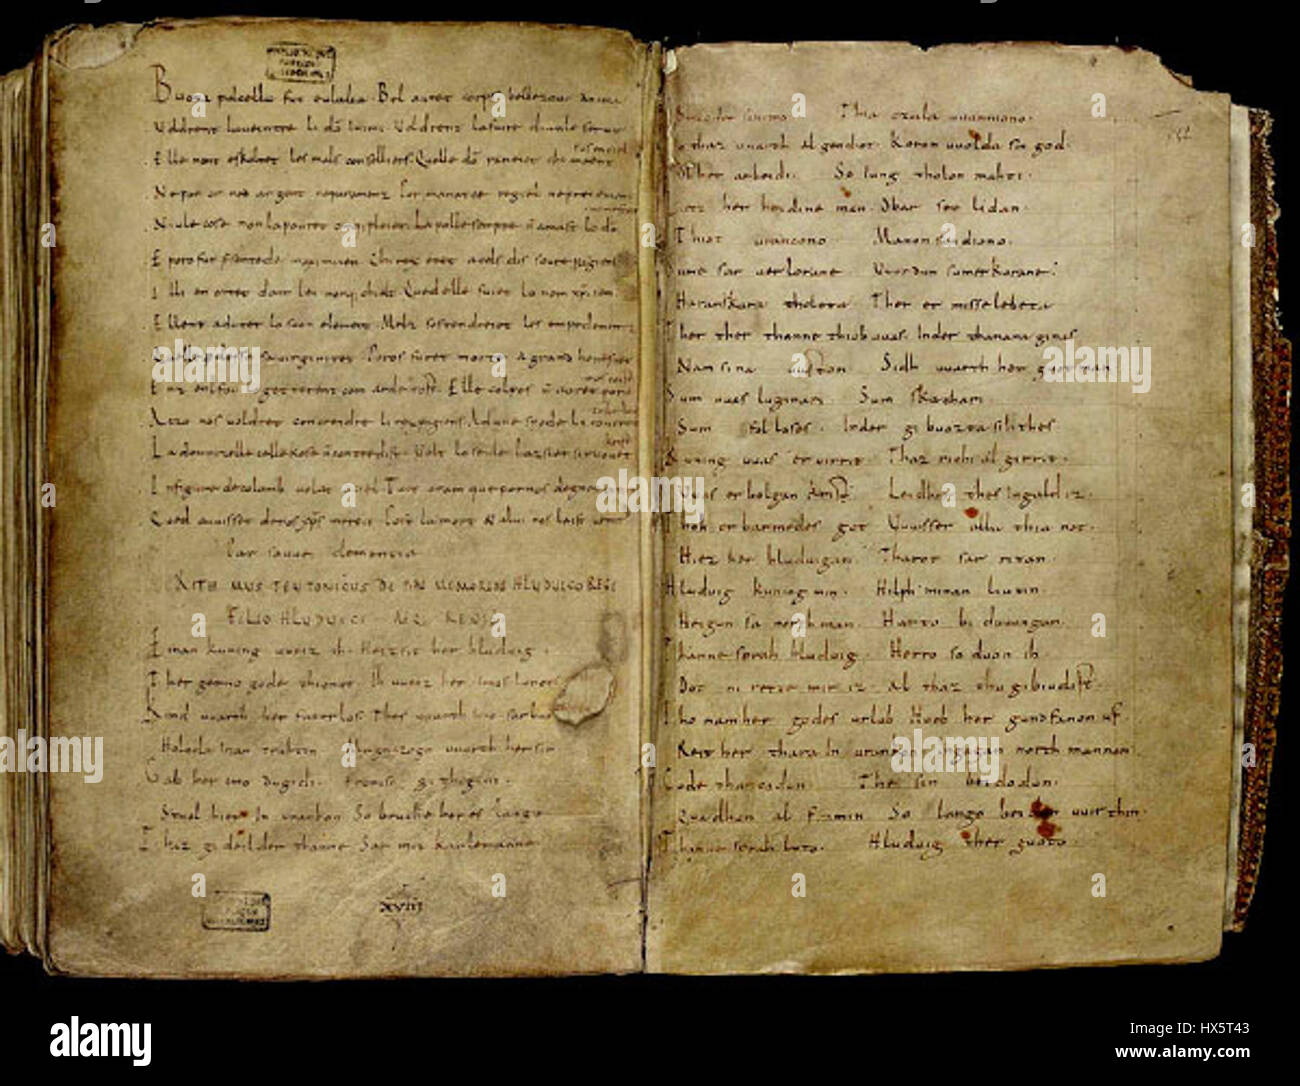 Buona pulcella fut eulalia. Bel auret corps bellezour anima
Voldrent la ueintre li dō inimi. Voldrent la faire diaule seruir
Elle nont eskoltet les mals conselliers. Quelle dō raneiet chi maent sus en ciel
Ne por or ned argent ne paramenz. Por manatce regiel ne preiement
Niule cose non la pouret omqi pleier. La polle sempre ñ amast lo dō menestier
E poro fut presentede maximiien. Chi rex eret a cels dis soure pagiens
Illi en ortet dont lei nonqi chielt. Qued elle fuiet lo nom xp̄iien.
Ellent adunet lo suon element. Melz sostendreiet les empedementz
Quelle perdesse sa uirginitet. Poros furet morte a grand honestet
Enz enl fou la getterent com arde tost. Elle colpes ñ auret poro nos coist
Aezo nos voldret concreidre li rex pagiens. Ad une spede li roueret tolir lo chief
La domnizelle celle kose ñ contredist. Volt lo seule lazsier si ruouet krist
In figure de colomb uolat a ciel. Tuit oram que por nos degnet preier
Qued auuisset de nos xp̄s mercit. Post la mort & a lui nos laist uenir
Par souue clementia
RITHMUS TEUTONICUS DE PIAE MEMORIAE HLUDUICO REGE
FILIO HLUDUICI AEQ REGIS
Einan kuning uueiz ih. Heizsit her hluduig.
Ther gerno gode thionot. Ih uueiz her imos lonot
Kind uuarth her faterlos. Thes uuarth imo sar buoz
Holoda inan truhtin. Magaczogo uuarth her sin
Gab her imo dugidi. Fronisc githigini.
Stual hier In urankon So bruche her es lango
Thaz gideilder thanne Sar mit karlemanne
xviij
Bruoder sinemo Thia czala uuunniono.
So thaz uuarth al gendiot. Koron uuolda sin god.
Ob her arbeidi. So iung tholon mahti.
Lietz her heidine man Obar seo lidan.
Thiot urancono Manon sundiono.
Sume sar uerlorane Uuurdun sumerkorane.
Haranskara tholota Ther er misselebeta
Ther ther thanne thiob uuas. Inder thanana ginas
Nam sina uaston Sidh uuarth her guot man
Sum uuas luginari Sum skachari
Sum fol loses. Inder gibuozta sih thes
Kuning uuas eruirrit Thaz richi al girrit
Uuas erbolgan krist Leidhor thes ingald iz.
Thoh erbarmedes got Uuuisser alla thia not.
Hiez her hluduigan Tharot sar ritan
Hluduig kuning min. Hilph minan liutin
Heigun sa northman Harto biduuungan.
Thanne sprah hluduig. Herro so duon ih
Dot ni rette mir iz Al thaz thu gibiudist.
Tho nam her godes urlub Huob her gundfanon uf.
Reit her thara In urankon Ingagan northmannon
Gode thancodun The sin beidodun.
Quadhun al fromin So lango beidon uuir thin.
Thanne sprah luto. Hluduig ther guoto.
alamy
a
HX5T43
www.alamy.com